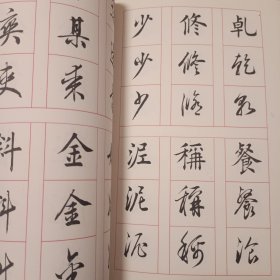 乾乾乾
修修修
少少少
餐餐餐
稱稱稱
泥泥泥
某某
金金金